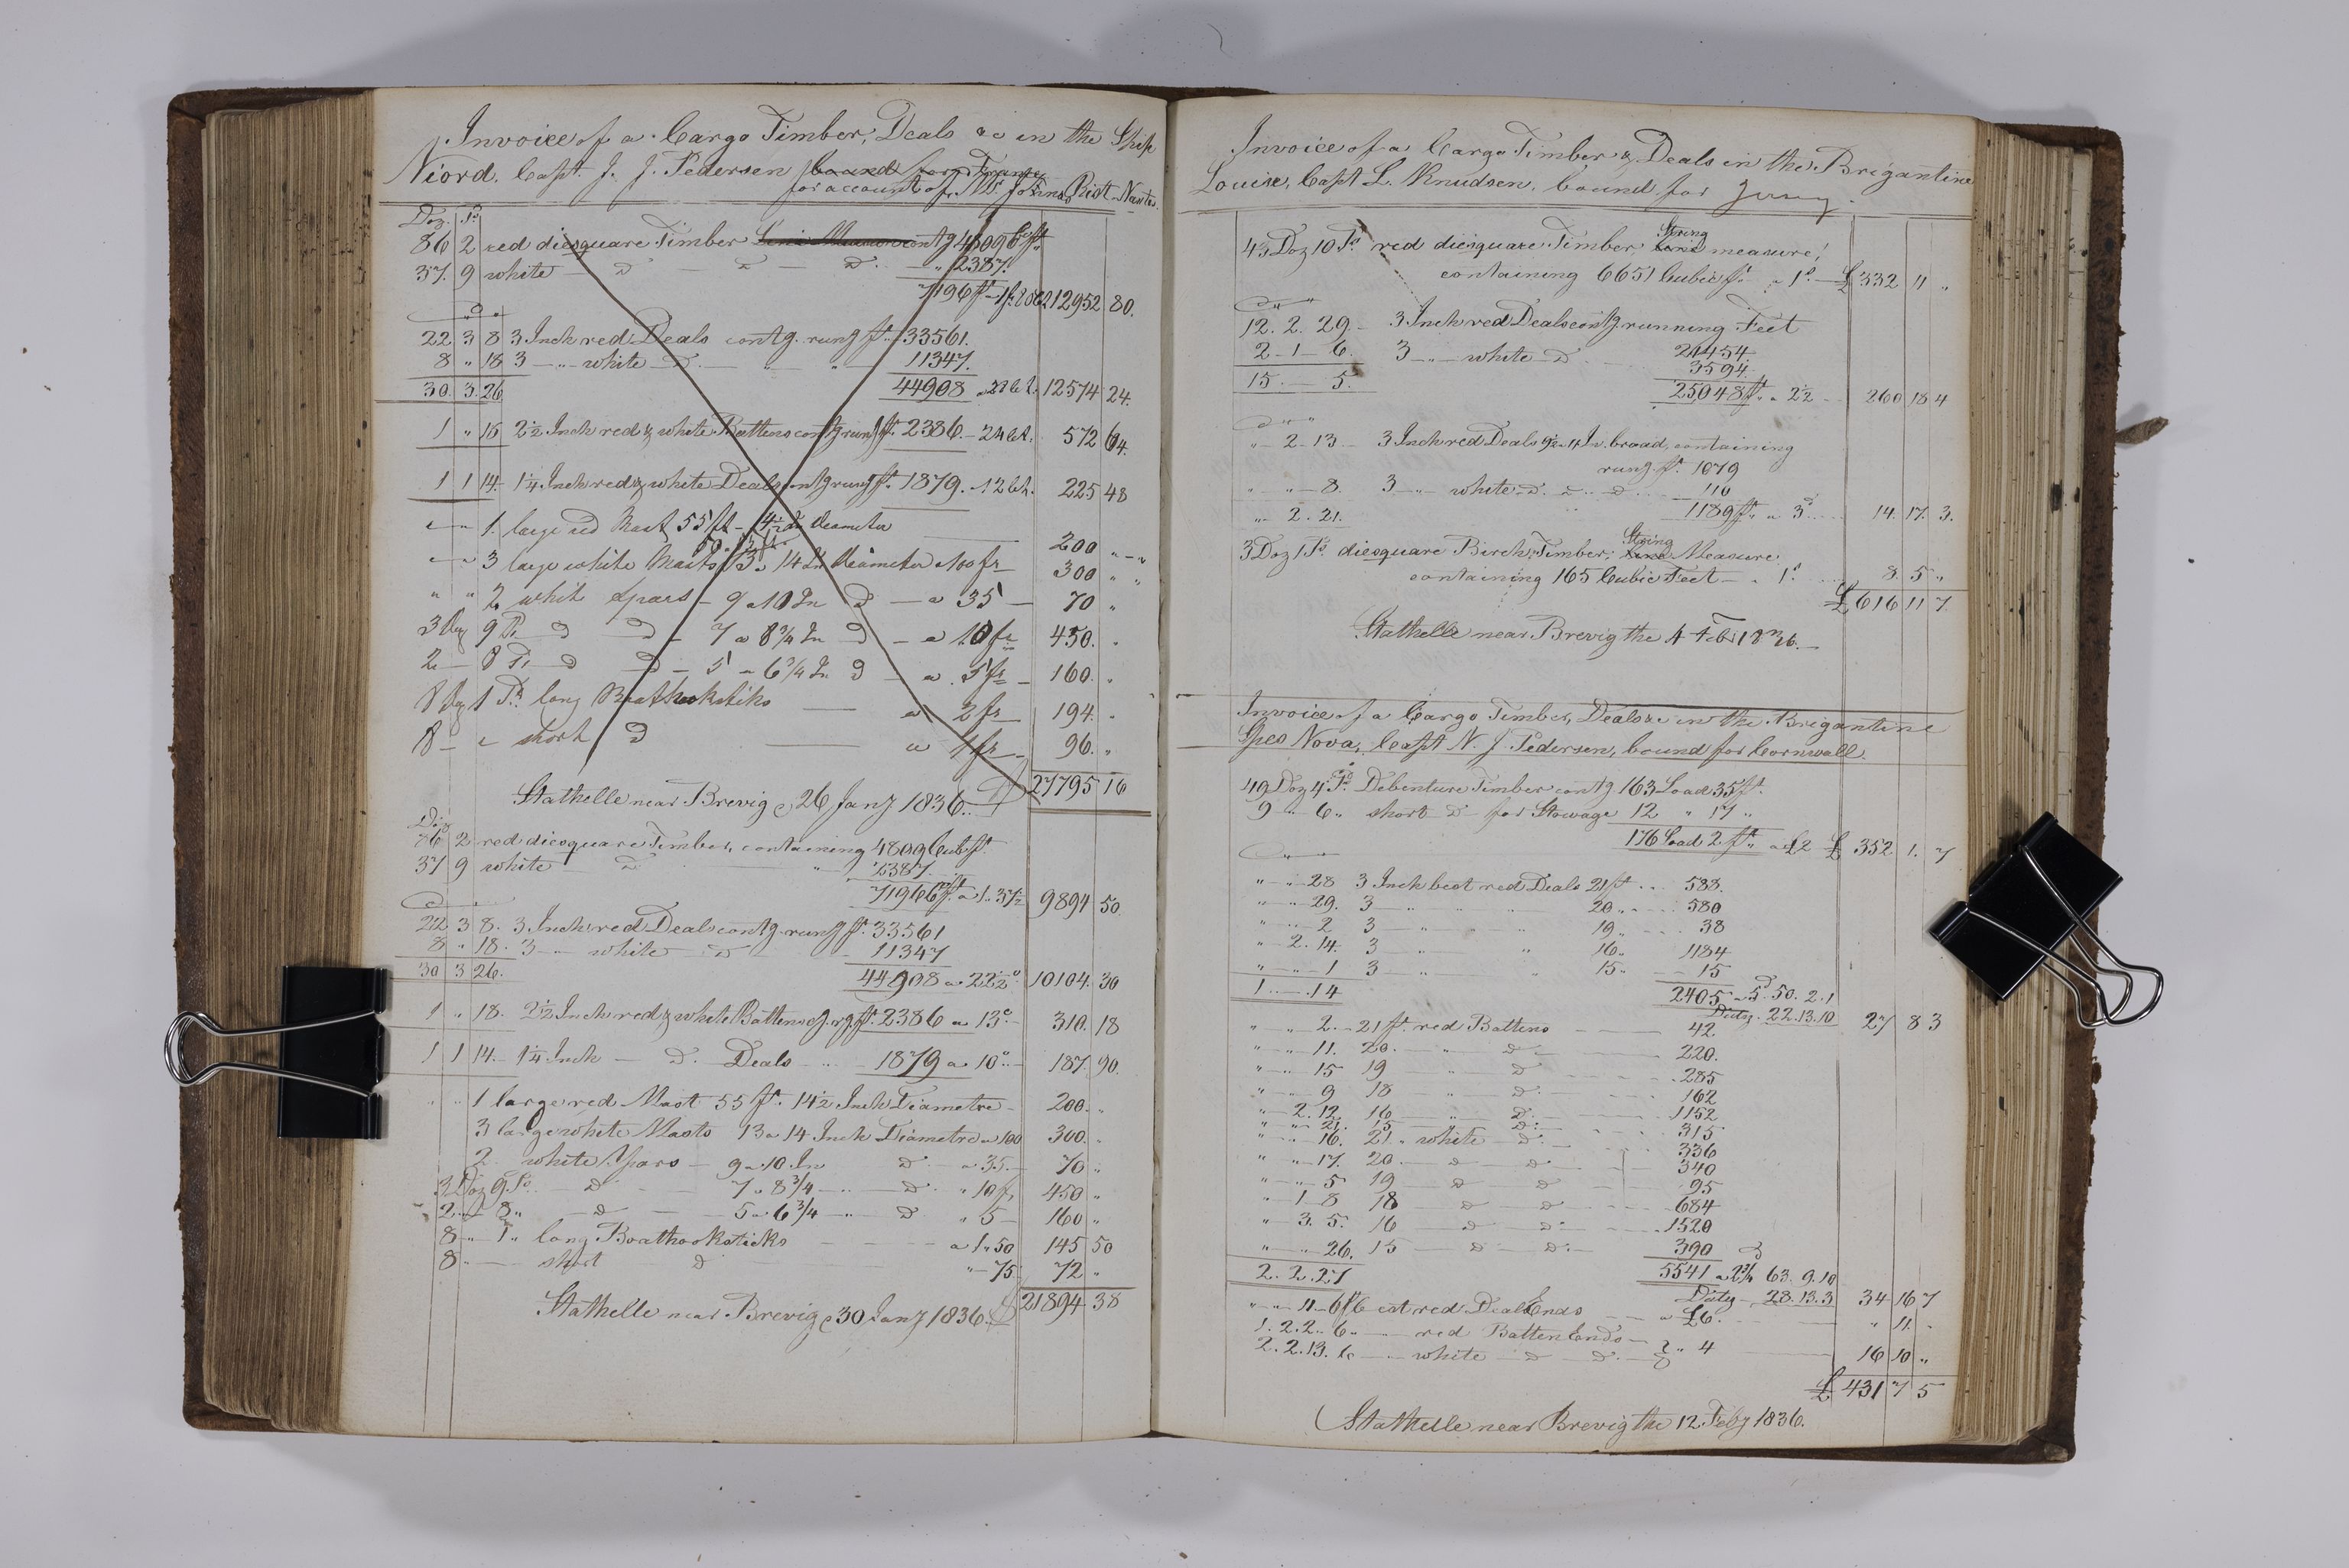 Invoice of a Cargo Timber, Deals &c in the Ship
Niord. Capt. J. J. Pedersen bound for France
for account of Mr. Nantes.
Doz. Ps
86 2 red diesquare Timber contg 4809 Cub ft
37. 9 white — d — d — d. — " 2387.
7196 ft - 1 f. 80 c 12952 80.
22 3 8 3 Inch red Deals contg. rung ft. 33561.
8 " 18 3 — " — white — d. — " " 11347.
30. 3. 26 44908 a 28 ct. 12574 24.
1 " 18 2½ Inch red & white Battens contg rung ft. 2386. - 24 ct. 572 64.
1 1 14 1¼ Inch red & white Deals contg rung ft. 1879. - 12 ct. 225 48
" " 1. large red Mast 55 ft - 14½ In diameter 200 " "
" " 3 large white Masts 13 a 14 In diameter a 100 fr 300 " "
" " 2 white Spars - 9 a 10 In d — a 35 — 70 "
3 Doz 9 Ps d d - 7 a 8¾ In d — a 10 fr 450. "
2 — 8 Ps d d - 5 - 6¾ In d — a 5 fr — 160. "
8 Doz 1 Ps. long Boathooksticks — a 2 fr 194. "
8 — " short d — a 1 fr 96. "
27795 16
Stathelle near Brevig e 26 Jany 1836.
Doz
86 2 red diesquare Timber, containing 4809 Cub ft.
37 9 white d " 2387.
7196 Cft. a 1. 37½ 9894 50
22 3 8. 3 Inch red Deals contg. rung ft. 33561
8 " 18. 3 — " white — d — 11347
30 3 26. 44908 a 22½ c 10104. 30
1 " 18. 2½ Inch red & white Battens cg. rg ft. 2386 a 13 c - 310. 18
1 1 14. - 1¼ Inch — d. Deals - " - 1879 a 10 c. - 187. 90.
" " 1 large red Mast 55 ft. 14½ Inch Diametre - 200. "
3 large white Masts 13 a 14 Inch Diametre a 100 300. "
2. white Spars — 9 a 10 In d - a 35. - 70 "
3 Doz 9 Ps. — d — 7 a 8¾ — " — d. " 10 fr 450 "
2 " 8 " — d — 5 a 6¾ — " d " 5 — 160 "
8 " 1 " long Boathooksticks — a 1 " 50 145 50
8 " — short d " - 75. 72 "
21894 38
Stathelle near Brevig e 30 Jany 1836.
Invoice of a Cargo Timber & Deals in the Brigantine
Louise, Capt L. Knudsen, bound for Jersey.
43 Doz 10 Ps. red diesquare Timber, String measure,
containing 6651 Cubic ft. a 1 s. — £ 332 11 "
12. 2. 29. - 3 Inch red Deals contg running Feet
21454.
2 - 1 - 6. 3 — " — white — d 3594.
15. — 5. 25048 ft. a 2½ 260 18 4
" - 2 - 13 — 3 Inch red Deals 9½ a 11 In. broad, containing
rung ft. 1079
" — " — 8. 3 — " — white — d. — d — " — d. 110
" - 2. 21. 1189 ft. a 3 d 14. 17. 3.
3 Doz 1 Ps. diesquare Birch Timber, String Measure
containing 165 Cubic Feet — a 1 s. 8. 5 "
£ 616 11 7.
Stathelle near Brevig the 4 Feb 1836. —
Invoice of a Cargo Timber, Deals &c in the Brigantine
Spes Nova, Capt N. J. Pedersen, bound for Cornwall.
49 Doz 4 Ps. Debenture Timber contg 163 Load 35 ft.
9 " 6 " short — d — for Stowage 12 " 17 "
176 Load 2 ft. a £2 £ 352 1. 7
" — " — 28 3 Inch best red Deals 21 ft. . . . 588.
" — " — 29. 3 " " " 20 " 580
" — " 2 3 " " " 19 " 38
" - 2. 14. 3 " " 16 " 1184
" — " — 1 3 " " 15 " 15
1. " — 14 2405 a 5 d 50. 2. 1
Duty . 22. 13. 10 27 8 3
" — " 2. - 21 ft. red Battens — 42
" — " 11. 20. — " d — 220.
" — " 15 19 " d — 285
" — " 9 18 " d. — 162
" - 2. 12. 16 — " d. — 1152
" — " 21. 15 — " d. — 315
" — " 16. 21. " white — d — 336
" — " 17. 20. — d — d. — 340
" — " 5 19 — d — d — 95
" - 1 - 8 18 — d — d — 684
" - 3. 5. 16 — d — d. — 1520
" — " 26. 15 — d — d. — 390
2. 2. 27 5541 a 2¾ 63. 9. 10
Duty - 28. 13. 3 34 16 7
" — " — 11 - 6 ft best red Deal Ends — a £6. " 11. "
1. 2. 2. " 6 " — red Batten Ends —
2. 2. 13. 6 — " — white — d — d. " 4 16 10 "
£ 431 7 5
Stathelle near Brevig the 12 Feby 1836.